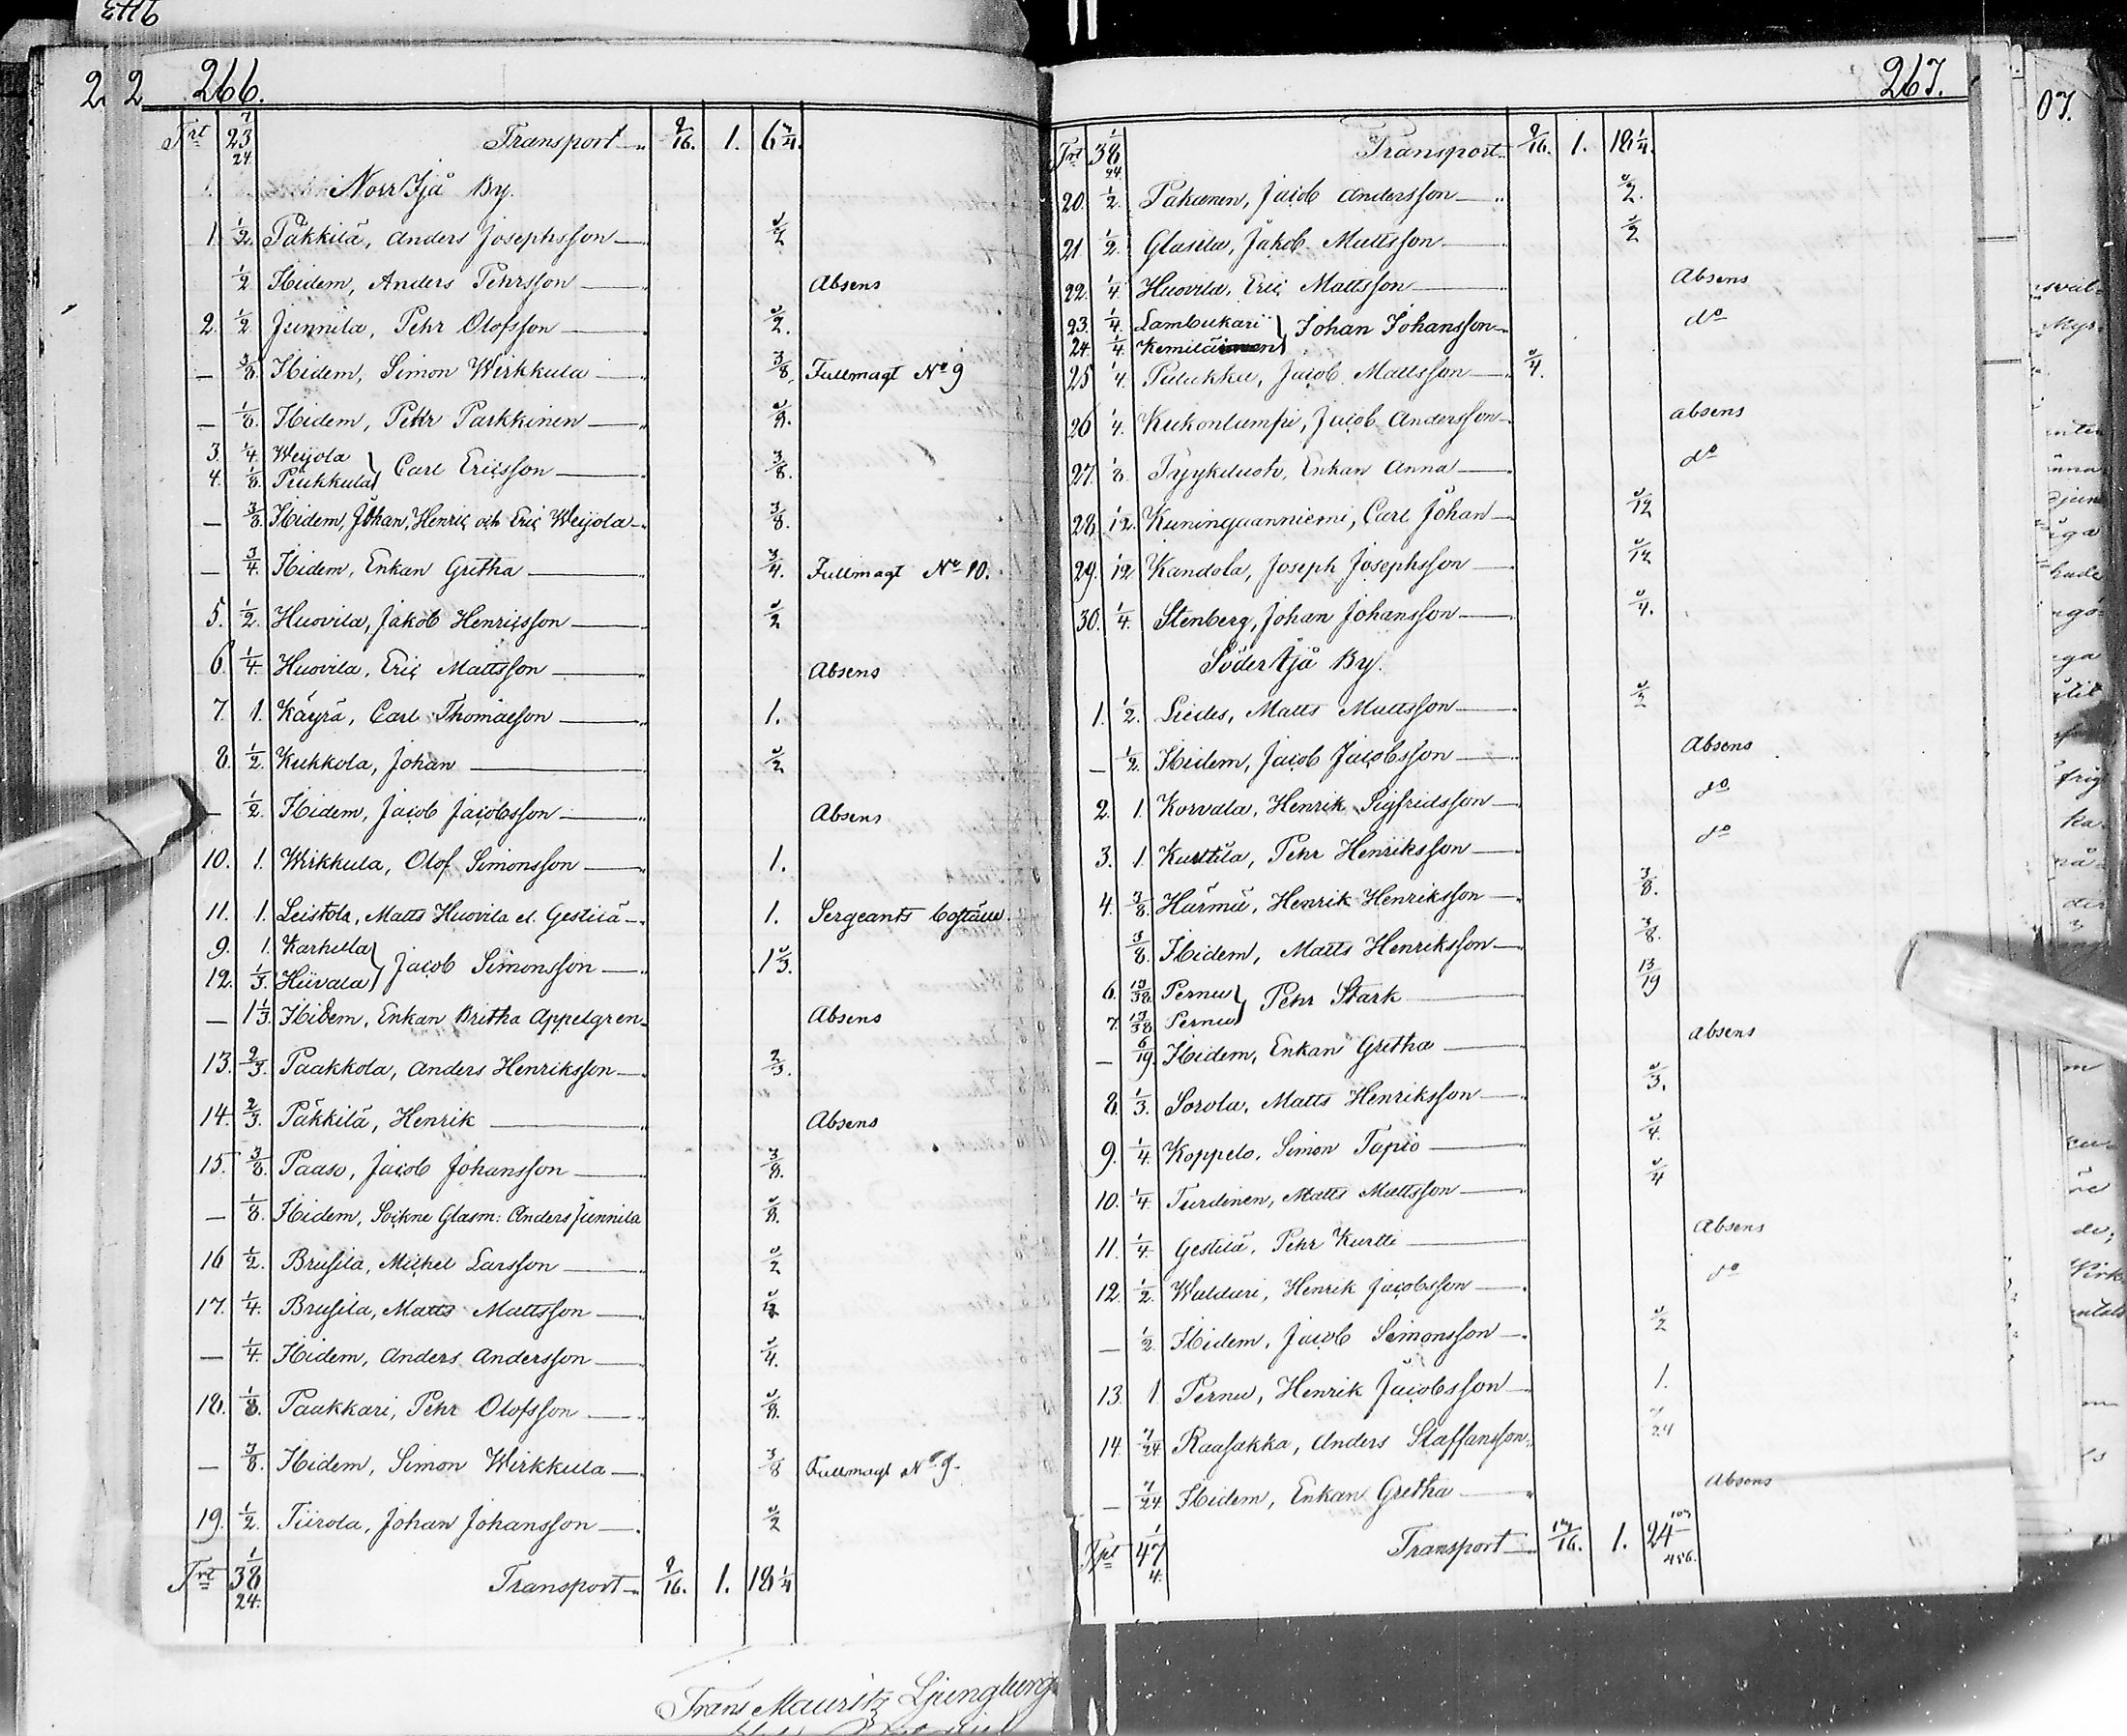 266.
Trt 23 7/24 Transport 9/16. 1. 6 3/4.
Norr Ijå By.
1. 1/2. Päkkilä, Anders Josephsson 1/2
1/2 Ibidem, Anders Pehrsson Absens
2. 1/2 Junnila, Pehr Olofsson 1/2.
— 3/8. Ibidem, Simon Wirkkula 3/8. Fullmagt No 9
— 1/8. Ibidem, Pehr Parkkinen 1/8.
3. 1/4. Weijola } Carl Ericsson 3/8.
4. 1/8. Piukkula
— 3/8. Ibidem, Johan, Henric och Eric Weijola 3/8.
— 3/4. Ibidem, Enkan Gretha 3/4. Fullmagt No 10.
5. 1/2. Huovila, Jakob Henricsson 1/2
6. 1/4. Huovila, Eric Mattsson Absens
7. 1. Käyrä, Carl Thomaeson 1.
8. 1/2. Kukkola, Johan 1/2
— 1/2. Ibidem, Jacob Jacobsson Absens
10. 1. Wirkkula, Olof Simonsson 1.
11. 1. Leistola, Matts Huovila el. Gestilä 1. Sergeants boställe.
9. 1. Karhula } Jacob Simonsson 1 1/3.
12. 1/3. Hiivala
— 1 1/3. Ibidem, Enkan Britha Appelgren Absens
13. 2/3. Paakkola, Anders Henriksson 2/3.
14. 2/3. Päkkilä, Henrik Absens
15. 3/8. Paaso, Jacob Johansson 3/8.
— 1/8. Ibidem, Sockne Glasm: Anders Junnila 1/8.
16 1/2. Brusila, Michel Larsson 1/2
17. 1/4. Brusila, Matts Mattsson
— 1/4. Ibidem, Anders Andersson 1/4.
18. 1/8. Paakkari, Pehr Olofsson 1/8.
— 3/8. Ibidem, Simon Wirkkula 3/8 Fullmagt No 9.
19. 1/2. Tiirola, Johan Johansson 1/2
Trt 38 1/24. Transport 9/16. 1. 18 1/4
Frans Mauritz Ljungberg
267.
Trt 38 1/24 Transport 9/16. 1. 18 1/4.
20. 1/2. Pakanen, Jacob Andersson 1/2.
21. 1/2. Glasila, Jakob Mattsson 1/2
22. 1/4. Huovila, Eric Mattsson Absens
23. 1/4. Lambukari } Johan Johansson do
24. 1/4. Kemilä
25 1/4. Pulukka, Jacob Mattsson 1/4.
26 1/4. Kukonlumpi, Jacob Andersson absens
27. 1/8. Enkan Anna do
28. 1/12. Kuningaanniemi, Carl Johan 1/12
29. 1/12 Kandola, Joseph Josephsson 1/12
30. 1/4. Stenberg, Johan Johansson 1/4.
Söder Ijå By.
1. 1/2. Liedes, Matts Mattsson 1/2
— 1/2. Ibidem, Jacob Jacobsson Absens
2. 1. Korvala, Henrik Sigfridsson do
3. 1. Kurttila, Pehr Henriksson do
4. 3/8. Härmä, Henrik Henriksson 3/8.
3/8. Ibidem, Matts Henriksson 3/8.
6. 13/38. Pernu } Pehr Stark 13/19
7. 13/38. Pernu
— 6/19. Ibidem, Enkan Gretha Absens
8. 1/3. Sorola, Matts Henriksson 1/3.
9. 1/4. Koppelo, Simon Tapio 1/4.
10. 1/4. Turdinen, Matts Mattsson 1/4
11. 1/4. Gestilä, Pehr Kurtti Absens
12. 1/2. Waldari, Henrik Jacobsson do
— 1/2. Ibidem, Jacob Simonsson 1/2
13. 1 Pernu, Henrik Jacobsson 1.
14. 7/24. Raasakka, Anders Staffansson 7/24
— 7/24. Ibidem, Enkan Gretha Absens
Tpt 47 1/4. Transport 13/16. 1. 24 107/456.